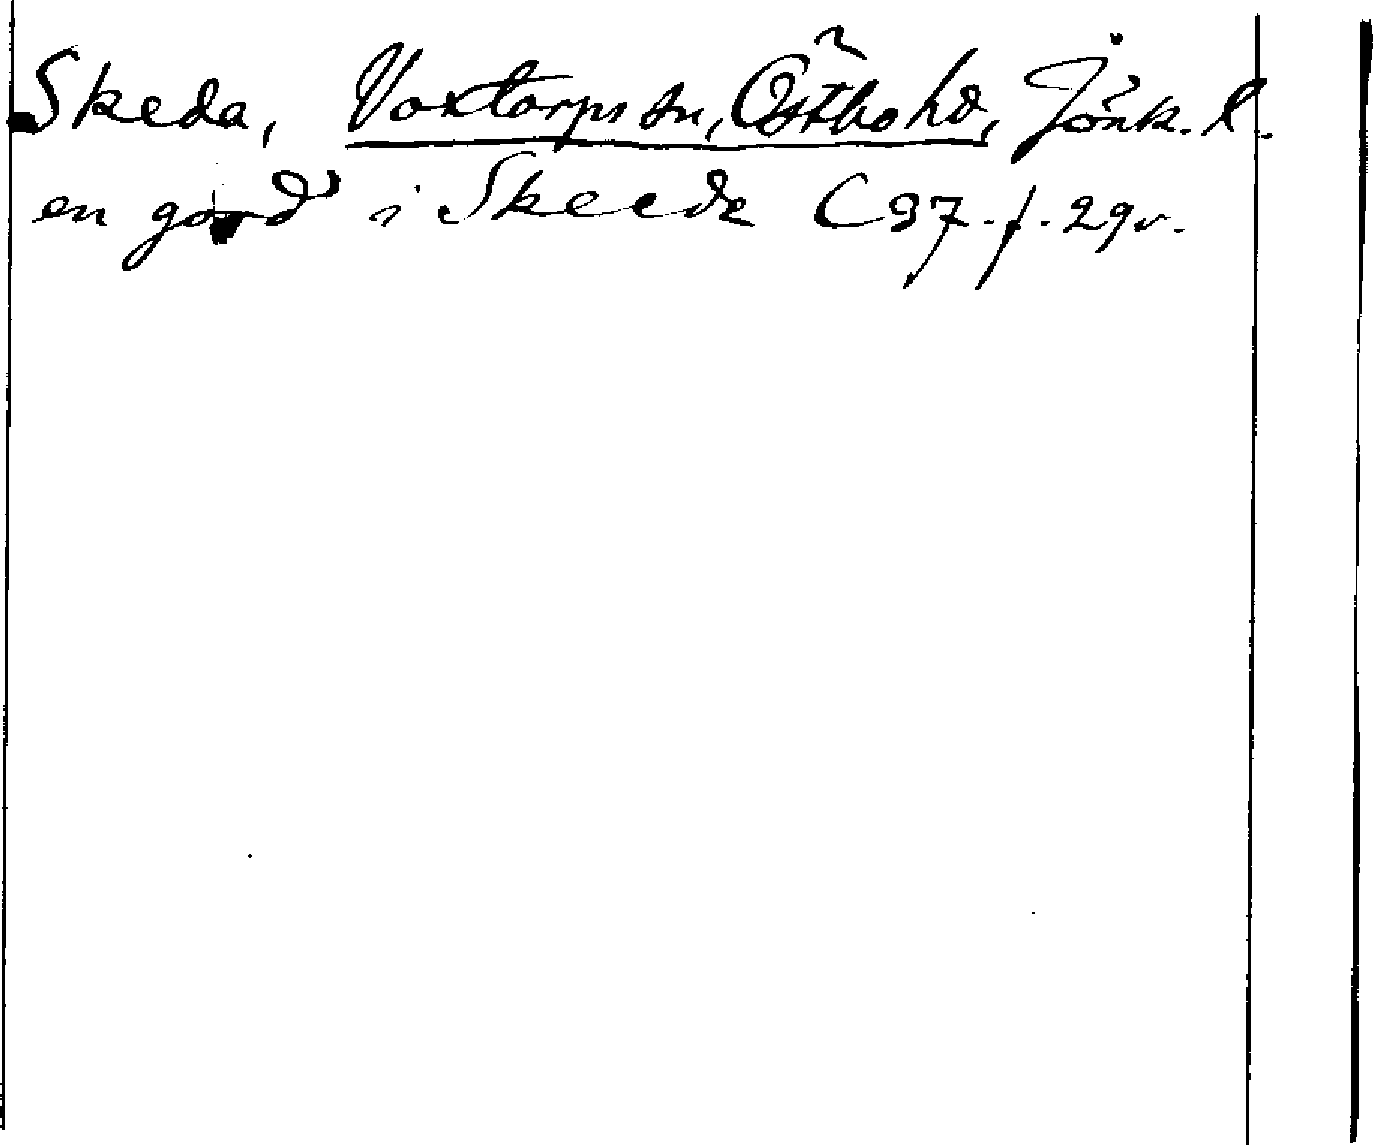 Skeda, Voxtorps sn, Östbo hd, Jönk. l.
en gord i Skeede C 37. f. 29v.